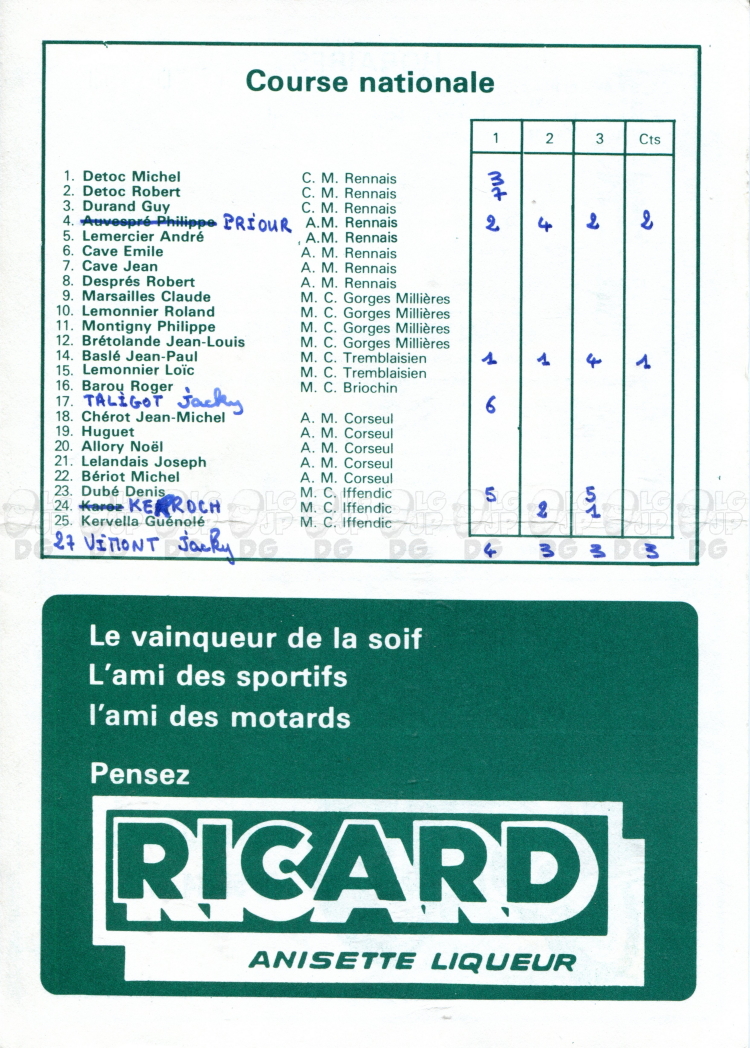 Course nationale
1 2 3 Cts
1. Detoc Michel C. M. Rennais 3
2. Detoc Robert C. M. Rennais 7
3. Durand Guy C. M. Rennais
4. Auvespré Philippe PRIOUR A.M. Rennais 2 4 2 2
5. Lemercier André A.M. Rennais
6. Cave Emile A. M. Rennais
7. Cave Jean A. M. Rennais
8. Després Robert A. M. Rennais
9. Marsailles Claude M. C. Gorges Millières
10. Lemonnier Roland M. C. Gorges Millières
11. Montigny Philippe M. C. Gorges Millières
12. Brétolande Jean-Louis M. C. Gorges Millières
14. Baslé Jean-Paul M. C. Tremblaisien 1 1 4 1
15. Lemonnier Loïc M. C. Tremblaisien
16. Barou Roger M. C. Briochin
17. TALIGOT Jacky 6
18. Chérot Jean-Michel A. M. Corseul
19. Huguet A. M. Corseul
20. Allory Noël A. M. Corseul
21. Lelandais Joseph A. M. Corseul
22. Bériot Michel A. M. Corseul
23. Dubé Denis M. C. Iffendic 5 5
24. Karoz KERROCH M. C. Iffendic 2 1
25. Kervella Guénolé M. C. Iffendic
27 VIMONT Jacky 4 3 3 3
Le vainqueur de la soif
L'ami des sportifs
l'ami des motards
Pensez
RICARD
ANISETTE LIQUEUR